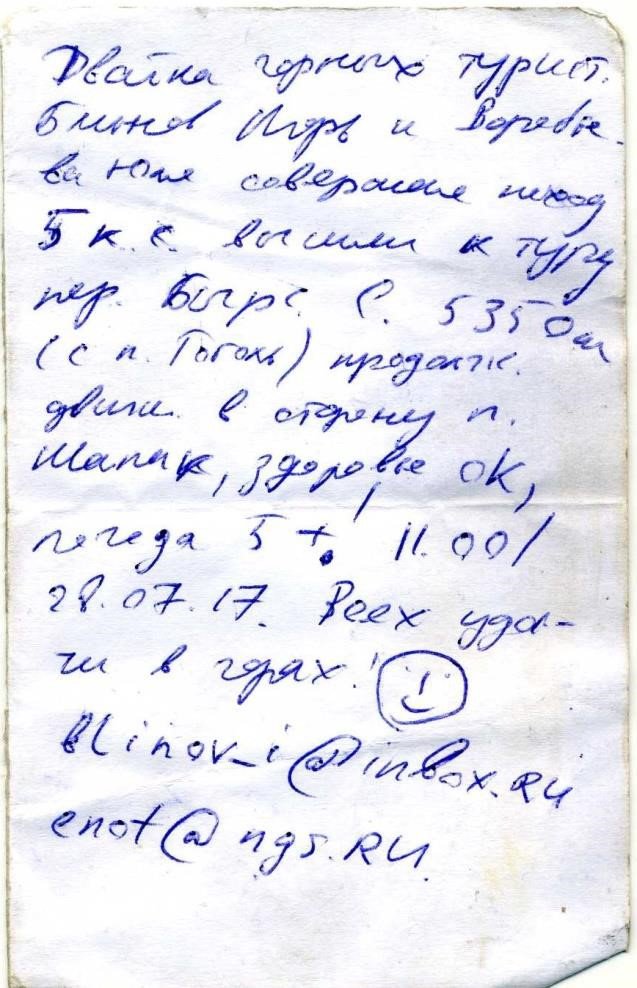 Двойка горных турист.
Блинов Игорь и Воробье-
ва Юля совершая поход
5 к.с. вышли к туру
пер. С. 5350м
(с п. Гоголь) продолж.
движ. в сторону п.
Шапак, здоровье ОК,
погода 5+! 11.00/
28.07.17. Всех уда-
чи в горах!
blinov_i@inbox.RU
enot@ngs.RU